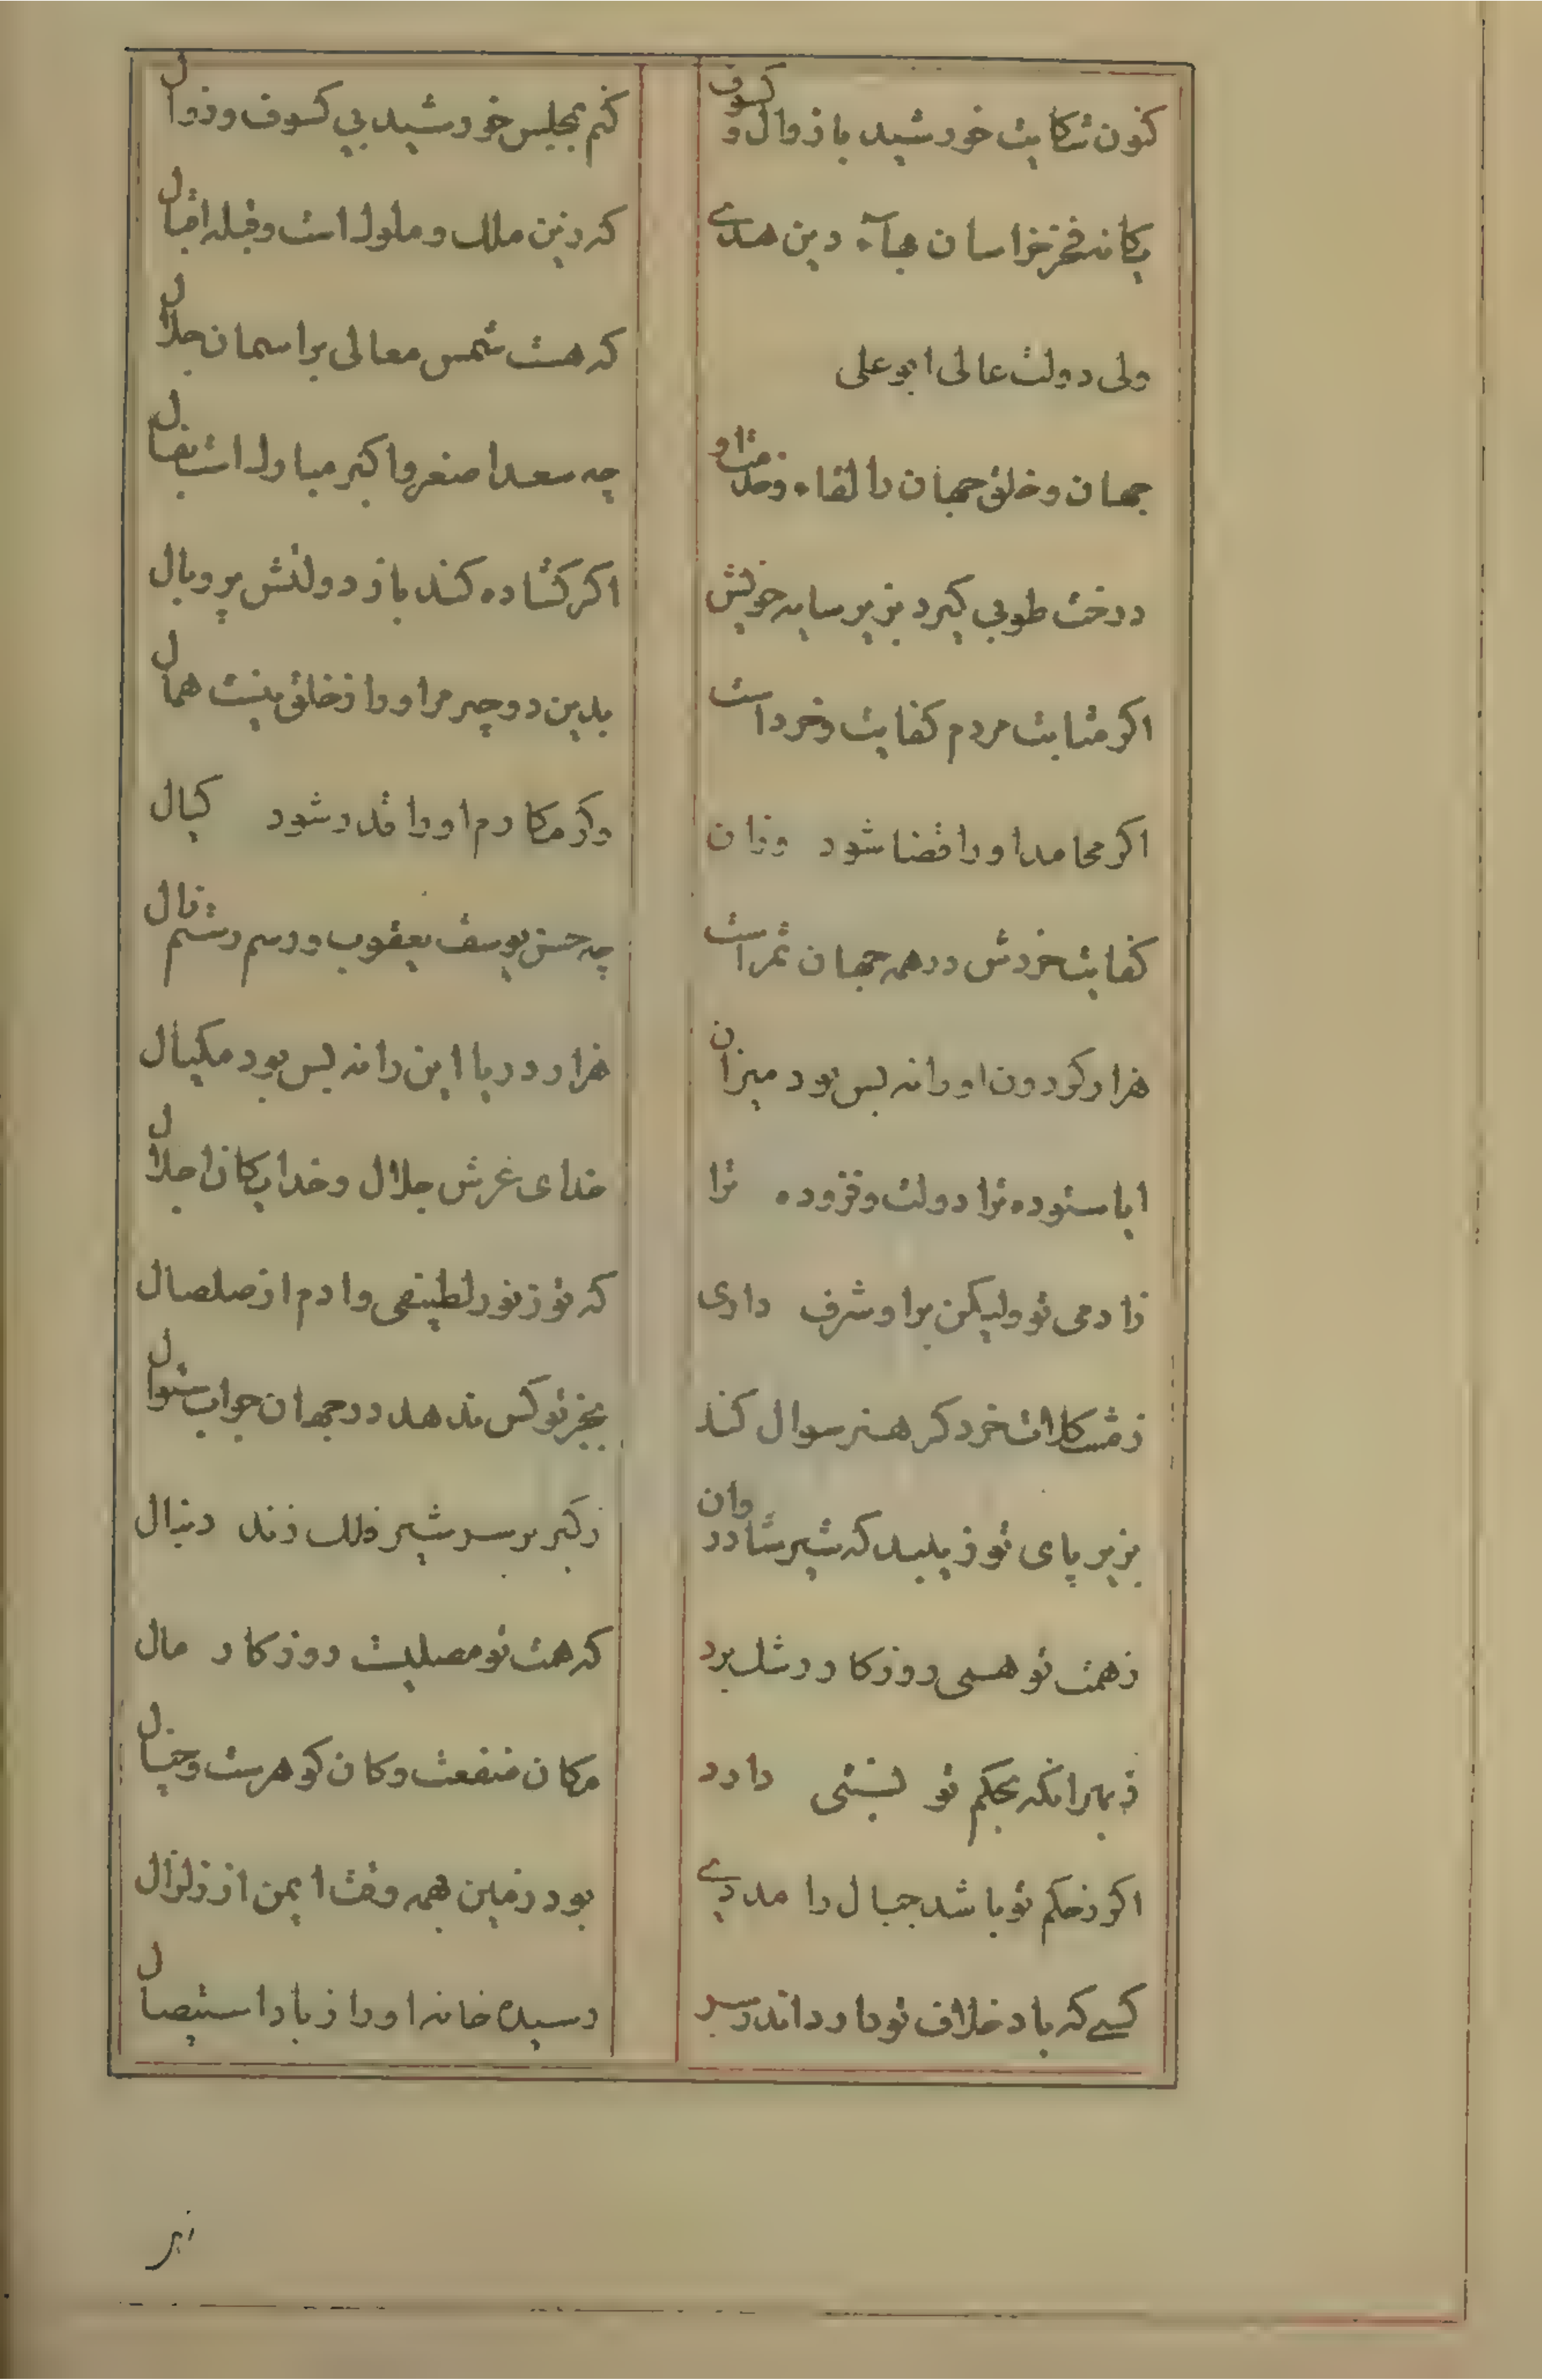 کنون شکایت خورشید با زوال و کسوف
کنم بمجلس خورشید بی کسوف و زوال
یکانه فخر خراسان بهآء دین هدی
که دین ملک و ملوک است و قبله اقبال
ولی دولت عالی ابو علی
که هست شمس معالی بر اسمان جلال
جهان و خلق جهان را لقاء و خدمت او
چه سعد اصغر و اکبر مبارک است بفال
درخت طوبی کیرد بزیر سایه خویش
اکر کشاده کند باز دولتش پر و بال
اکر مثابت مردم کفایت و خرد است
بدین دو چیز مر او را ز خلق نیست همال
اکر محامد او را قضا شود وزان
وکر مکارم او را قدر شود کیال
هزار کردون او را نه بس بود میزان
هزار دریا این را نه بس بود مکیال
کفایت خردش در همه جهان ثمر است
چه حسن یوسف یعقوب و رسم رستم زال
ایا ستوده ترا دولت و فزوده ترا
خدای عرش جلال و خدایکان اجلال
ز ادمی تو ولیکن بر او شرف داری
که تو ز نور لطیفی و ادم از صلصال
ز مشکلات خرد کر هنر سوال کند
بجز تو کس ندهد در جهان جواب سئوال
بزیر پای تو زیبد که شیر شادروان
ز کبر بر سر شیر فلک زند دنبال
ز همت تو همی روزکار رشک برد
که همت تو روزکار مال
ز بهر انکه بحکم تو نسبتی دارد
مکان منفعت و کان کوهرست و جبال
اکر ز حکم تو باشد جبال را مددی
بود زمین همه وقت ایمن از زلزال
کسی که باد خلاف تو دارد اندر سر
رسیده خانه او را ز باد استیصال